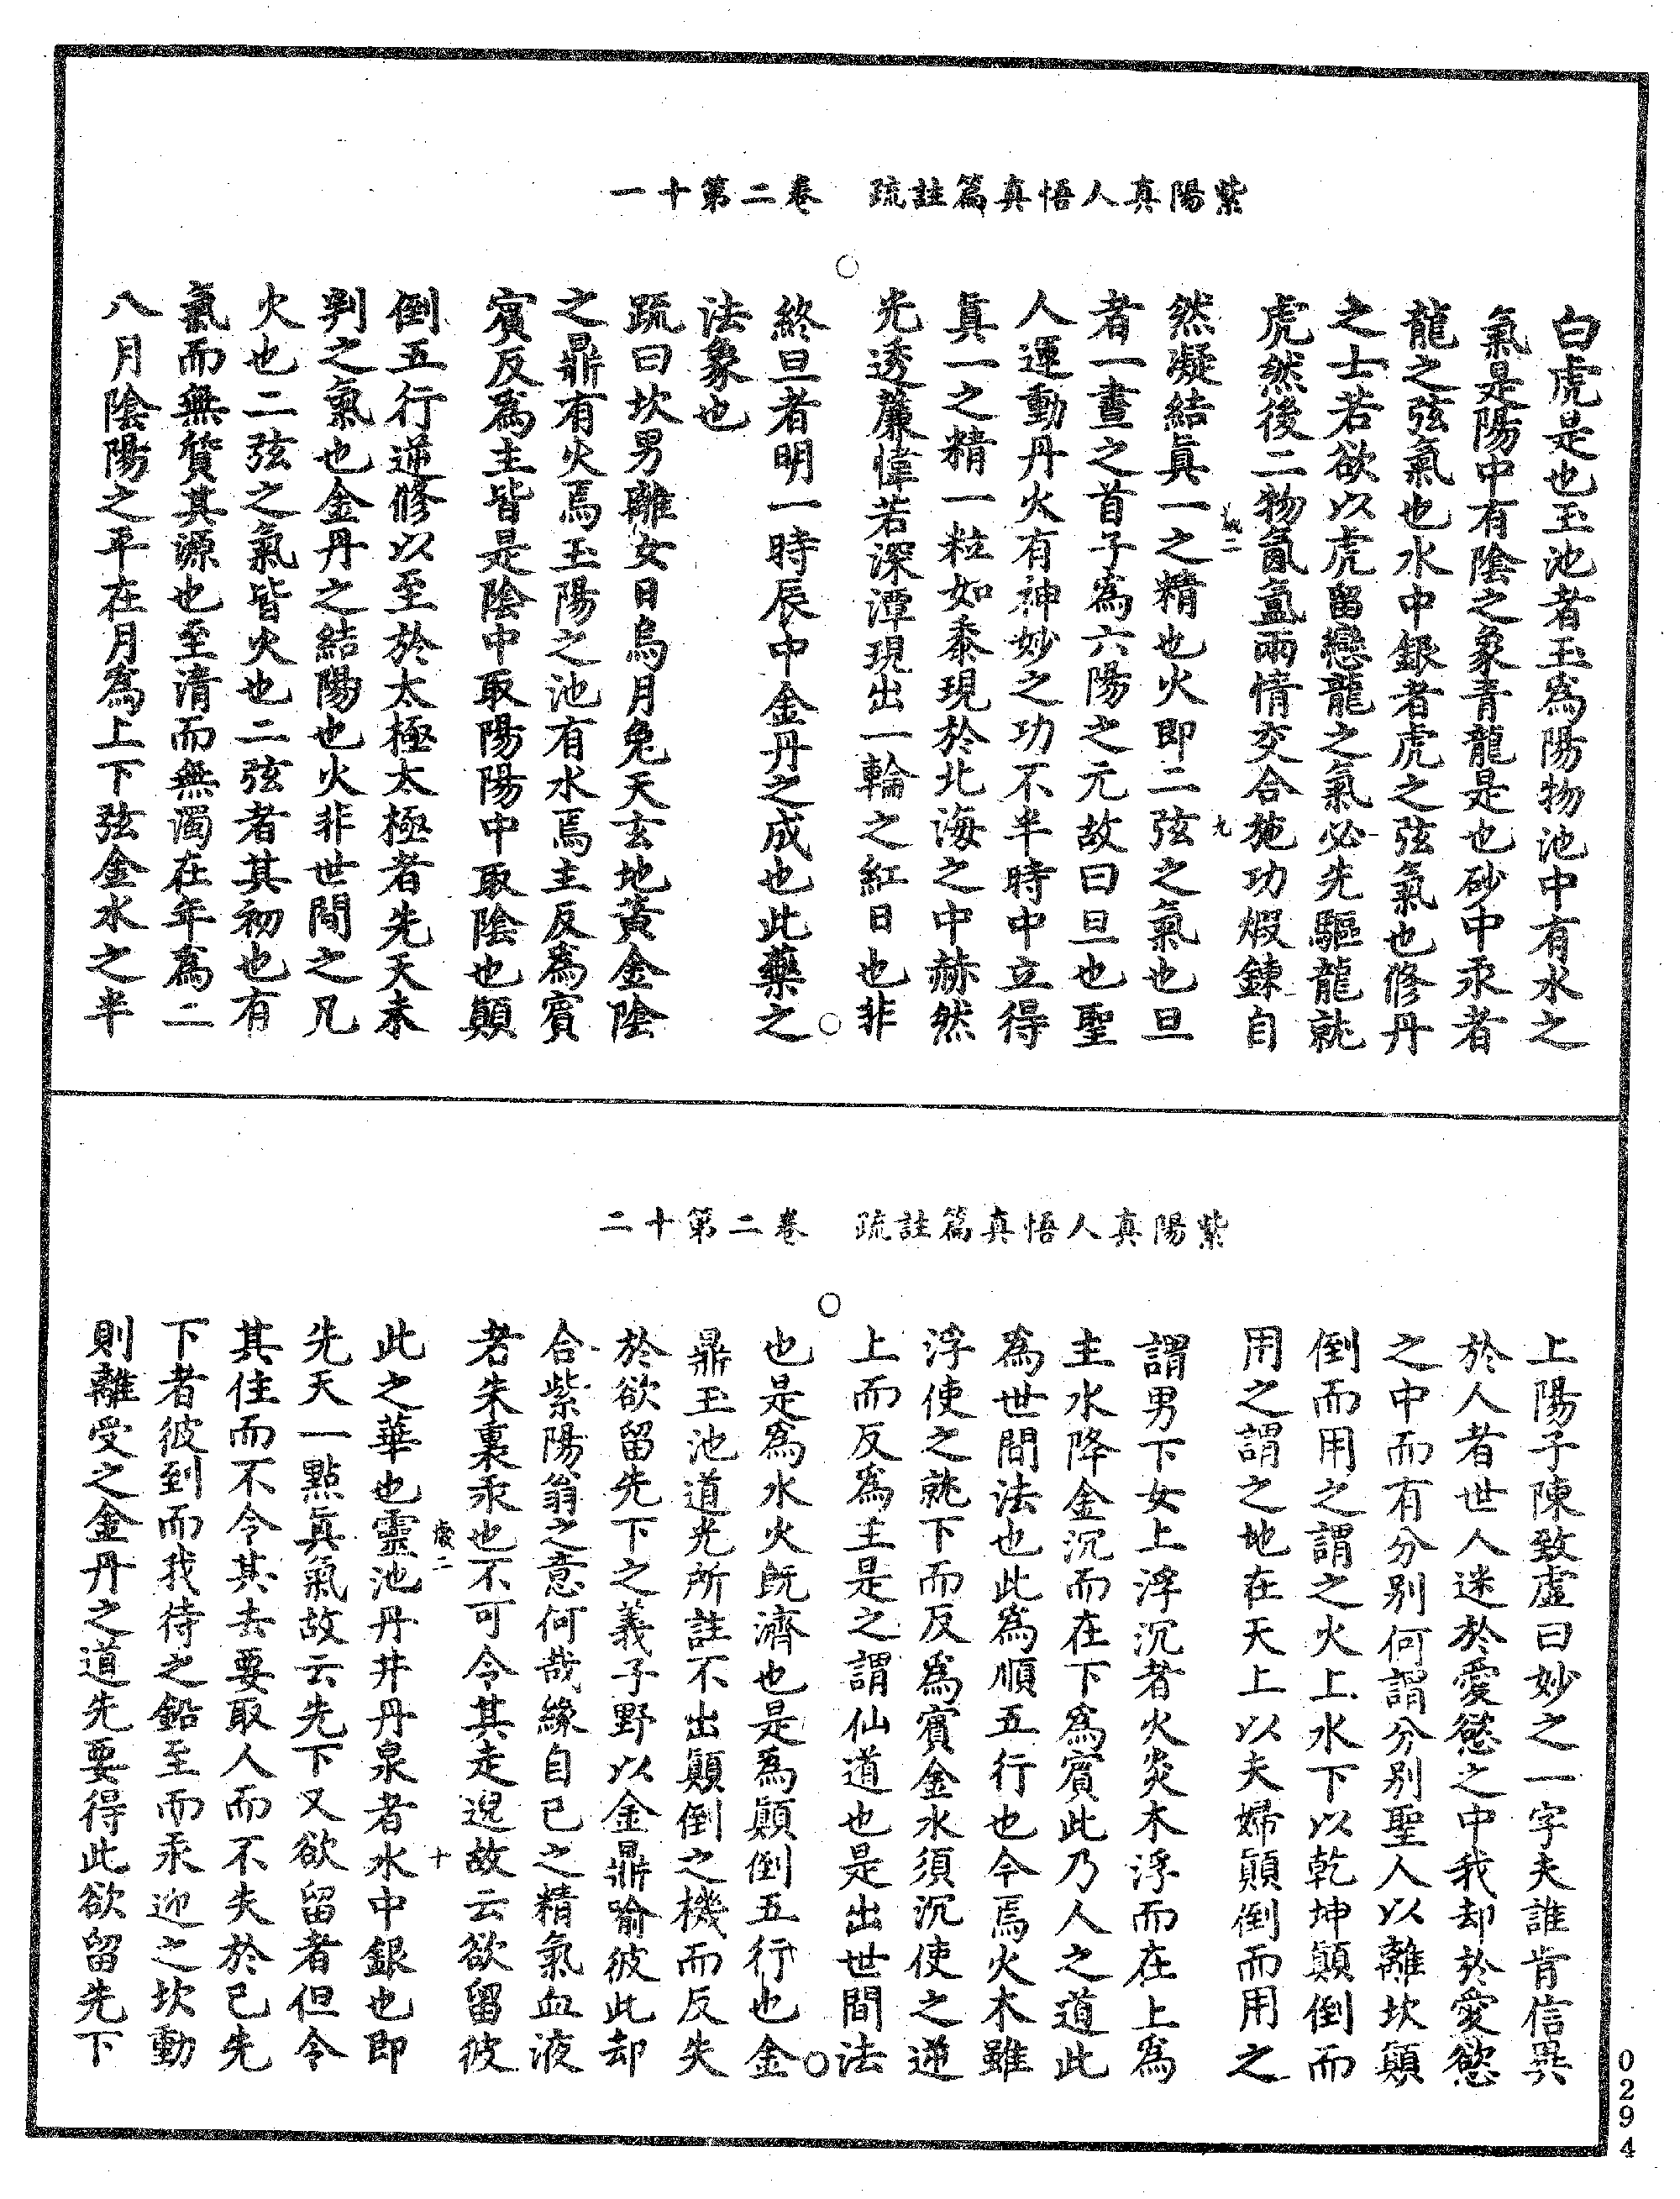 紫陽真人悟真篇註疏　卷二第十一
白虎是也玉池者玉為陽物池中有水之
氣是陽中有陰之象青龍是也砂中汞者
龍之弦氣也水中銀者虎之弦氣也修丹
之士若欲以虎留戀龍之氣必先驅龍就
虎然後二物氤氳兩情交合施功煆鍊自
九
然凝結真一之精也火即二弦之氣也旦
者一晝之首子為六陽之元故曰旦也聖
人運動丹火有神妙之功不半時中立得
真一之精一粒如黍現於北海之中赫然
光透簾幃若深潭現出一輪之紅日也非
終旦者明一時辰中金丹之成也此藥之
法象也
疏曰坎男離女日烏月兔天玄地黃金陰
之鼎有火焉玉陽之池有水焉主反為賓
賓反為主皆是陰中取陽陽中取陰也顛
倒五行逆修以至於太極太極者先天未
判之氣也金丹之結陽也火非世間之凡
火也二弦之氣皆火也二弦者其初也有
氣而無質其源也至清而無濁在年為二
八月陰陽之平在月為上下弦金水之半
紫陽真人悟真篇註疏　卷二第十二
上陽子陳致虛曰妙之一字夫誰肯信異
於人者世人迷於愛慾之中我却於愛慾
之中而有分別何謂分別聖人以離坎顛
倒而用之謂之火上水下以乾坤顛倒而
用之謂之地在天上以夫婦顛倒而用之
謂男下女上浮沉者火炎木浮而在上為
主水降金沉而在下為賓此乃人之道此
為世間法也此為順五行也今焉火木雖
浮使之就下而反為賓金水須沉使之逆
上而反為主是之謂仙道也是出世間法
也是為水火既濟也是為顛倒五行也金
鼎玉池道光所註不出顛倒之機而反失
於欲留先下之義子野以金鼎喻彼此却
合紫陽翁之意何哉緣自己之精氣血液
者朱裏汞也不可令其走逸故云欲留彼
歲二
十
此之華也靈池丹井丹泉者水中銀也即
先天一點真氣故云先下又欲留者但令
其住而不令其去要取人而不失於己先
下者彼到而我待之鉛至而汞迎之坎動
則離受之金丹之道先要得此欲留先下
0294